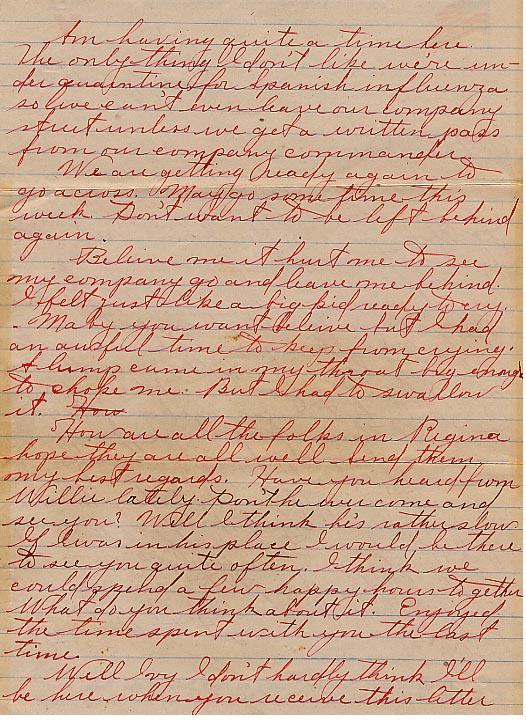 Am having quite a time here.
The only thing I don't like we're un-
der quarintine for Spanish influenza
so we can't even leave our company
street unless we get a written pass
from our company commander.
We are getting ready again to
go across. May go some time this
week. Don't want to be left behind
again.
Believe me it hurt me to see
my company go and leave me behind.
I felt just like a big kid ready to cry.
Maby you want believe but I had
an awful time to keep from crying.
A lump came in my throat big enough
to choke me. But I had to swallow
it. How
How are all the folks in Regina
hope they are all well. Send them
my best regards. Have you heard from
Willie lately. Don't he ever come and
see you? Well I think he's rather slow
If I was in his place I would be there
to see you quite often. I think we
could spend a few happy hours together
What do you think about it. Enjoyed
the time spent with you the last
time.
Well Ivy I don't hardly think I'll
be here when you receive this letter